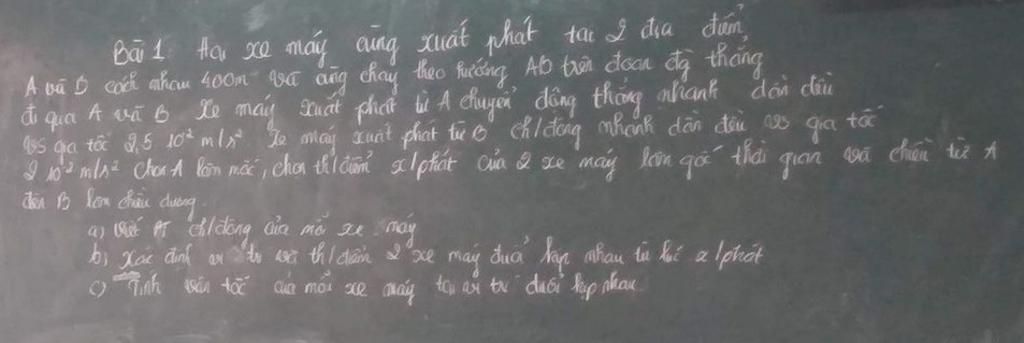 Bài 1: Hai xe máy cùng xuất phát tại 2 địa điểm,
A và B cách nhau 400m và cùng chạy theo hướng AB trên đoạn đg thẳng
đi qua A và B Xe máy xuất phát từ A chuyển động thẳng nhanh dần đều
vs gia tốc 2,5 10⁻² m/s² Xe máy xuất phát từ B ch/động nhanh dần đều vs gia tốc
2 10⁻² m/s² Chọn A làm mốc, chọn th/điểm x/phát của 2 xe máy làm gốc thời gian và chiều từ A
đến B làm chiều dương.
a) viết PT ch/động của mỗi xe máy
b) Xác định vị trí và th/điểm 2 xe máy đuổi kịp nhau từ lúc x/phát
c) Tính vận tốc của mỗi xe máy tại vị trí đuổi kịp nhau